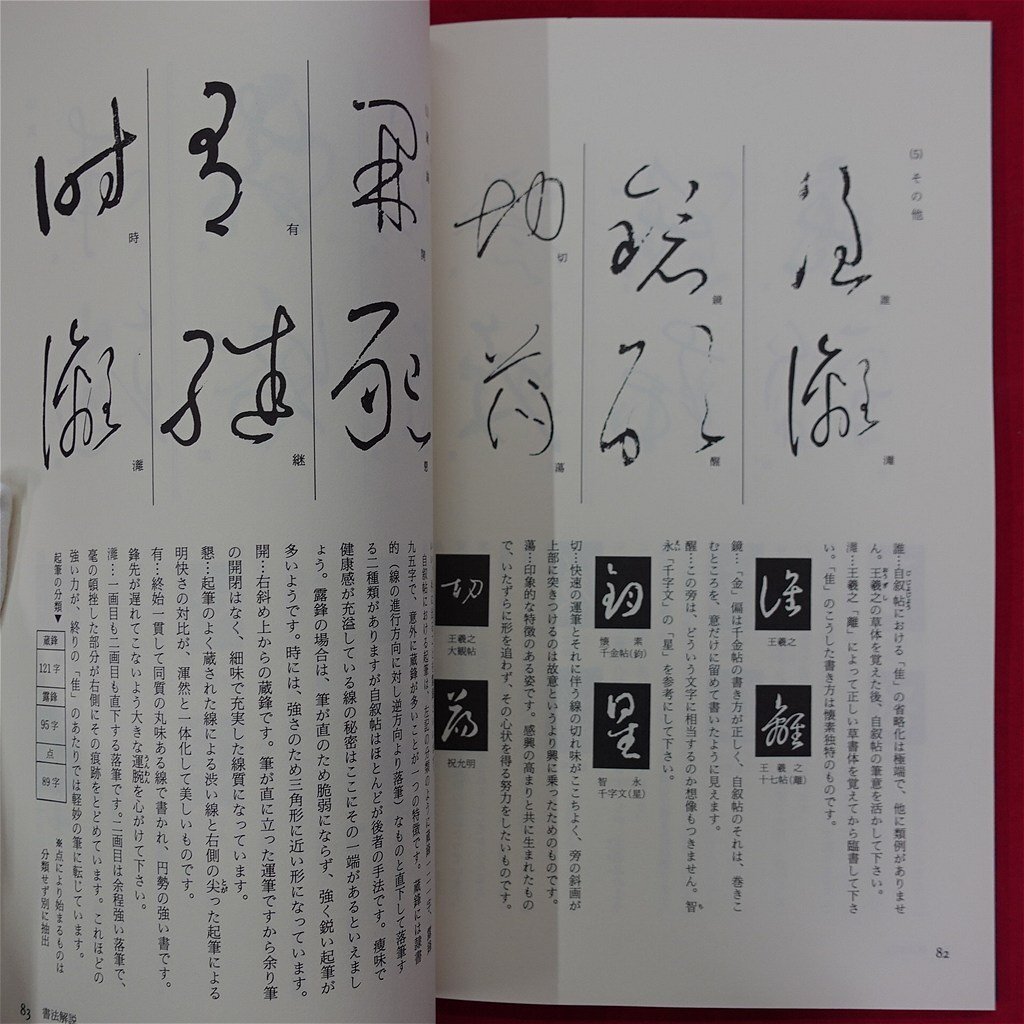 (5) その他
誰
灘
鏡
醒
切
蕩
王羲之
王羲之
十七帖(離)
懐素
千金帖(鈞)
智永
千字文(星)
王羲之
大観帖
祝允明
誰…自叙帖における「隹」の省略化は極端で、他に類例がありませ
ん。王羲之の草体を覚えた後、自叙帖の筆意を活かして下さい。
灘…王羲之「離」によって正しい草書体を覚えてから臨書して下さ
い。「隹」のこうした書き方は懐素独特のものです。
鏡…「金」偏は千金帖の書き方が正しく、自叙帖のそれは、巻きこ
むところを、意だけに留めて書いたように見えます。
醒…この旁は、どういう文字に相当するのか想像もつきません。智
永「千字文」の「星」を参考にして下さい。
切…快速の運筆とそれに伴う線の切れ味がここちよく、旁の斜画が
上部に突きつけるのは故意というより興に乗ったためのものです。
蕩…印象的な特徴のある姿です。感興の高まりと共に生まれたもの
で、いたずらに形を追わず、その心状を得る努力をしたいものです。
82
有
継
時
灘
九五字で、意外に蔵鋒が多いことが一つの特徴です。蔵鋒には隷書
的(線の進行方向に対し逆方向より落筆)なものと直下して落筆す
る二種類がありますが自叙帖はほとんどが後者の手法です。痩味で
健康感が充溢している線の秘密はここにその一端があるといえまし
ょう。露鋒の場合は、筆が直のため脆弱にならず、強く鋭い起筆が
多いようです。時には、強さのため三角形に近い形になっています。
開…右斜め上からの蔵鋒です。筆が直に立った運筆ですから余り筆
の開閉はなく、細味で充実した線質になっています。
懇…起筆のよく蔵された線による渋い線と右側の尖った起筆による
明快さの対比が、渾然と一体化して美しいものです。
有…終始一貫して同質の丸味ある線で書かれ、円勢の強い書です。
鋒先が遅れてこないよう大きな運腕を心がけて下さい。
灘…一画目も二画目も直下する落筆です。二画目は余程強い落筆で、
毫の頓挫した部分が右側にその痕跡をとどめています。これほどの
強い力が、終りの「隹」のあたりでは軽妙の筆に転じています。
起筆の分類▼
蔵鋒
121字
露鋒
95字
点
89字
※点により始まるものは
分類せず別に抽出
83 書法解説